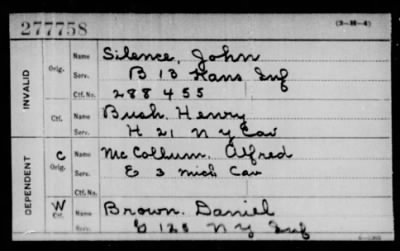 277758
(3-M-4)
INVALID
Orig. Name Silence, John
Serv. B 13 Kans Inf
Ctf. No. 288455
Ctf. Name Bush, Henry
Serv. H 21 N Y Cav
DEPENDENT
C Orig. Name McCollum, Alfred
Serv. E 3 Mich Cav
Ctf. No.
W Ctf. Name Brown, Daniel
Serv. G 128 N Y Inf